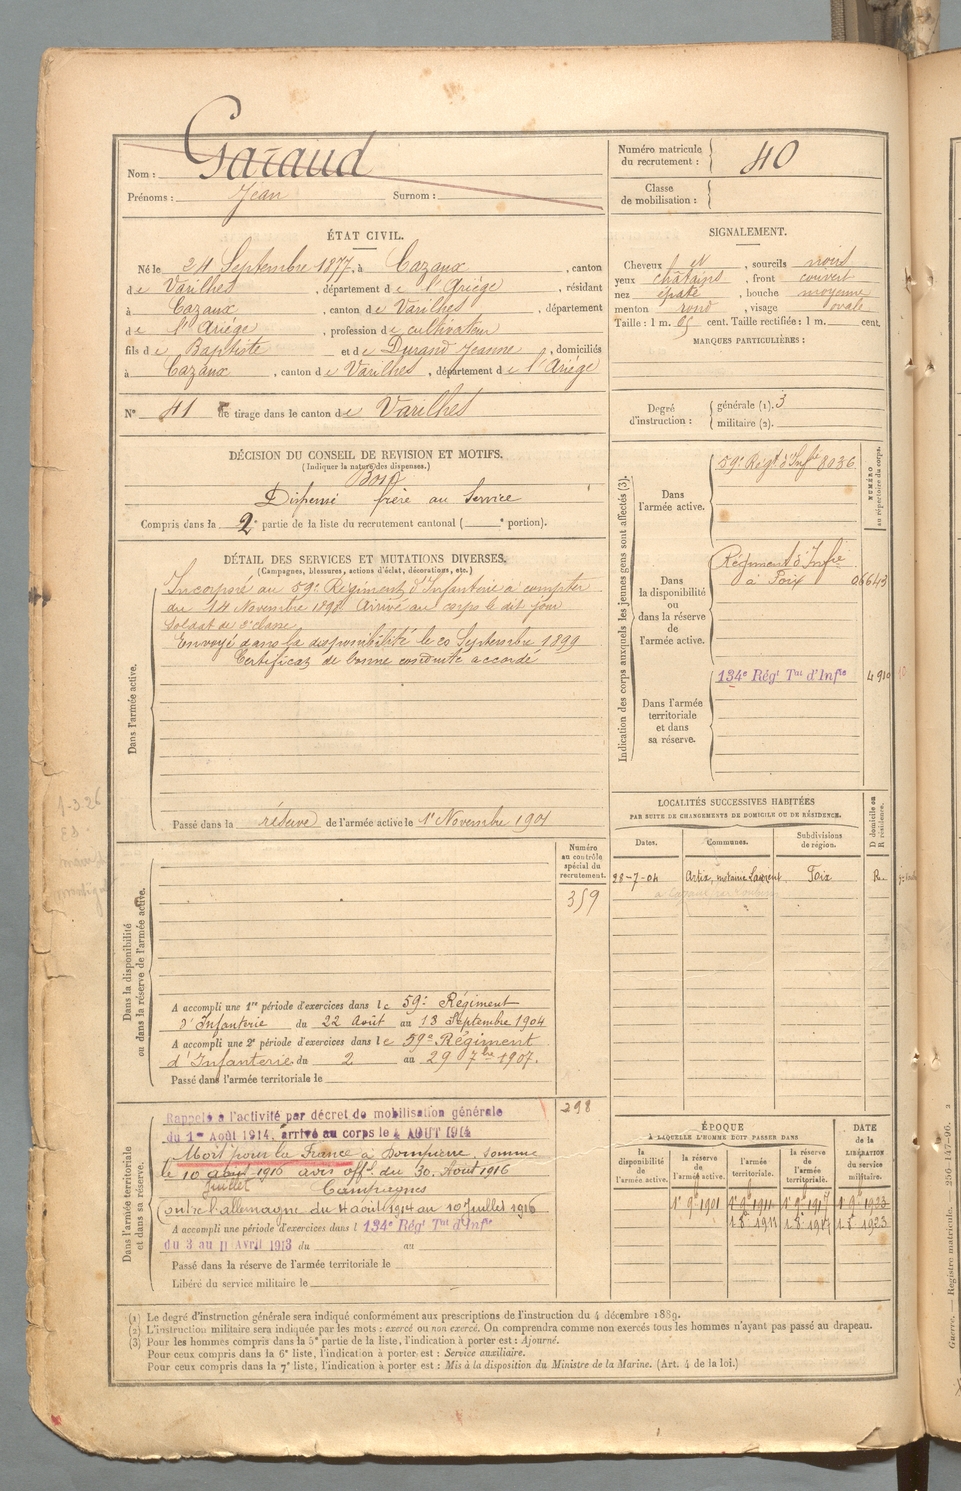 Nom : Garaud
Prénoms : Jean Surnom :
Numéro matricule du recrutement : 40
Classe de mobilisation :
ÉTAT CIVIL.
Né le 24 Septembre 1877, à Cazaux, canton
de Varilhes, département de l'Ariége, résidant
à Cazaux, canton de Varilhes, département
de l'Ariége, profession de cultivateur
fils de Baptiste et de Durand Jeanne, domiciliés
à Cazaux, canton de Varilhes, département de l'Ariége
N° 41 de tirage dans le canton de Varilhes
SIGNALEMENT.
Cheveux et, sourcils noirs
yeux châtains, front couvert
nez épaté, bouche moyenne
menton rond, visage ovale
Taille : 1 m. 65 cent. Taille rectifiée : 1 m. cent.
MARQUES PARTICULIÈRES :
Degré d'instruction : générale (1). 3
militaire (2).
DÉCISION DU CONSEIL DE REVISION ET MOTIFS.
(Indiquer la nature des dispenses.)
Bon
Dispensé frère au Service
Compris dans la 2e partie de la liste du recrutement cantonal ( e portion).
DÉTAIL DES SERVICES ET MUTATIONS DIVERSES.
(Campagnes, blessures, actions d'éclat, décorations, etc.)
Dans l'armée active.
Incorporé au 59e Régiment d'Infanterie à compter
du 14 Novembre 1898 Arrivé au corps le dit jour
Soldat de 2e classe
Envoyé dans la disponibilité le 20 Septembre 1899
Certificat de bonne conduite accordé
Passé dans la réserve de l'armée active le 1er Novembre 1901
Indication des corps auxquels les jeunes gens sont affectés (3).
NUMÉRO au répertoire du corps.
Dans l'armée active.
59e Régt d'Infie 8036
Dans la disponibilité ou dans la réserve de l'armée active.
Régiment d'Infie
à Foix 06643
Dans l'armée territoriale et dans sa réserve.
134e Régt Tal d'Infie 4910
LOCALITÉS SUCCESSIVES HABITÉES
PAR SUITE DE CHANGEMENTS DE DOMICILE OU DE RÉSIDENCE.
Dates. Communes. Subdivisions de région. D domicile ou R résidence.
28-7-04 Artix, métairie Laurent Foix R.
Dans la disponibilité ou dans la réserve de l'armée active.
Numéro au contrôle spécial du recrutement.
359
A accompli une 1re période d'exercices dans le 59e Régiment
d'Infanterie du 22 Août au 18 Septembre 1904
A accompli une 2e période d'exercices dans le 59e Régiment
d'Infanterie du 2 au 29 7bre 1907.
Passé dans l'armée territoriale le
Dans l'armée territoriale et dans sa réserve.
298
Rappelé à l'activité par décret de mobilisation générale
du 1er Août 1914, arrivé au corps le 4 AOUT 1914
Mort pour la France à Dompierre, Somme
le 10 août 1916 avis offl. du 30 Août 1916
Juillet Campagnes
Contre l'allemagne du 4 août 1914 au 10 Juillet 1916
A accompli une période d'exercices dans l 134e Régt Tal d'Infie
du 3 au 11 Avril 1913 du au
Passé dans la réserve de l'armée territoriale le
Libéré du service militaire le
ÉPOQUE
À LAQUELLE L'HOMME DOIT PASSER DANS
DATE de la LIBÉRATION du service militaire.
la disponibilité de l'armée active. la réserve de l'armée active. l'armée territoriale. la réserve de l'armée territoriale.
1er 9e 1901 1er 9e 1911 1er 9e 1917 1er 9e 1923
1 8e 1911 1 8e 1917 1 8e 1923
(1) Le degré d'instruction générale sera indiqué conformément aux prescriptions de l'instruction du 4 décembre 1889.
(2) L'instruction militaire sera indiquée par les mots : exercé ou non exercé. On comprendra comme non exercés tous les hommes n'ayant pas passé au drapeau.
(3) Pour les hommes compris dans la 5e partie de la liste, l'indication à porter est : Ajourné.
Pour ceux compris dans la 6e liste, l'indication à porter est : Service auxiliaire.
Pour ceux compris dans la 7e liste, l'indication à porter est : Mis à la disposition du Ministre de la Marine. (Art. 4 de la loi.)
1-3.26
Guerre. — Registre matricule. — 256-147-96.